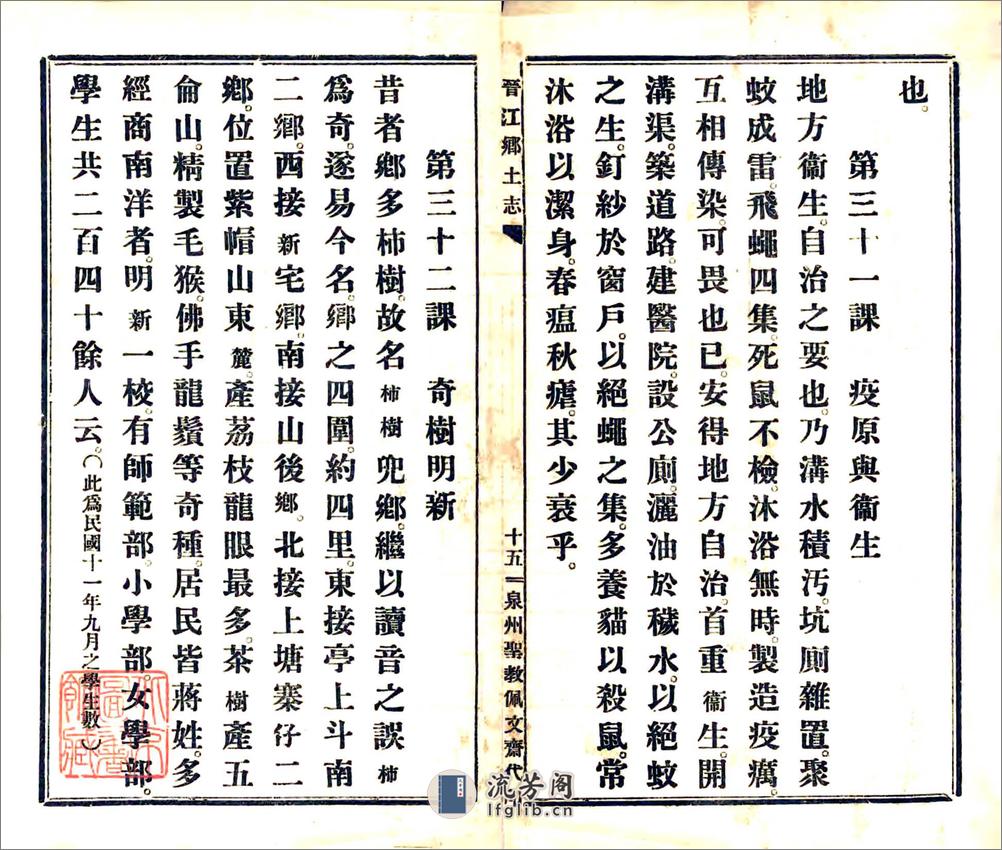 也。
第三十一課　疫原與衞生
地方衞生。自治之要也。乃溝水積污。坑廁雜置。聚
蚊成雷。飛蠅四集。死鼠不檢。沐浴無時。製造疫癘。
互相傳染。可畏也已。安得地方自治。首重衞生。開
溝渠。築道路。建醫院。設公廁。灑油於穢水。以絕蚊
之生。釘紗於窗戶。以絕蠅之集。多養貓以殺鼠。常
沐浴以潔身。春瘟秋瘧。其少衰乎。
晉江鄉土志
十五
泉州聖教佩文齋代
第三十二課　奇樹明新
昔者鄉多柿樹。故名柿樹兜鄉。繼以讀音之誤柿
爲奇。遂易今名。鄉之四圍。約四里。東接亭上斗南
二鄉。西接新宅鄉。南接山後鄉。北接上塘寨仔二
鄉。位置紫帽山東麓。產荔枝龍眼最多。茶樹產五
侖山。精製毛猴。佛手龍鬚等奇種。居民皆蔣姓。多
經商南洋者。明新一校。有師範部。小學部。女學部。
學生共二百四十餘人云。（此爲民國十一年九月之學生數）
流芳阁
lfglib.cn